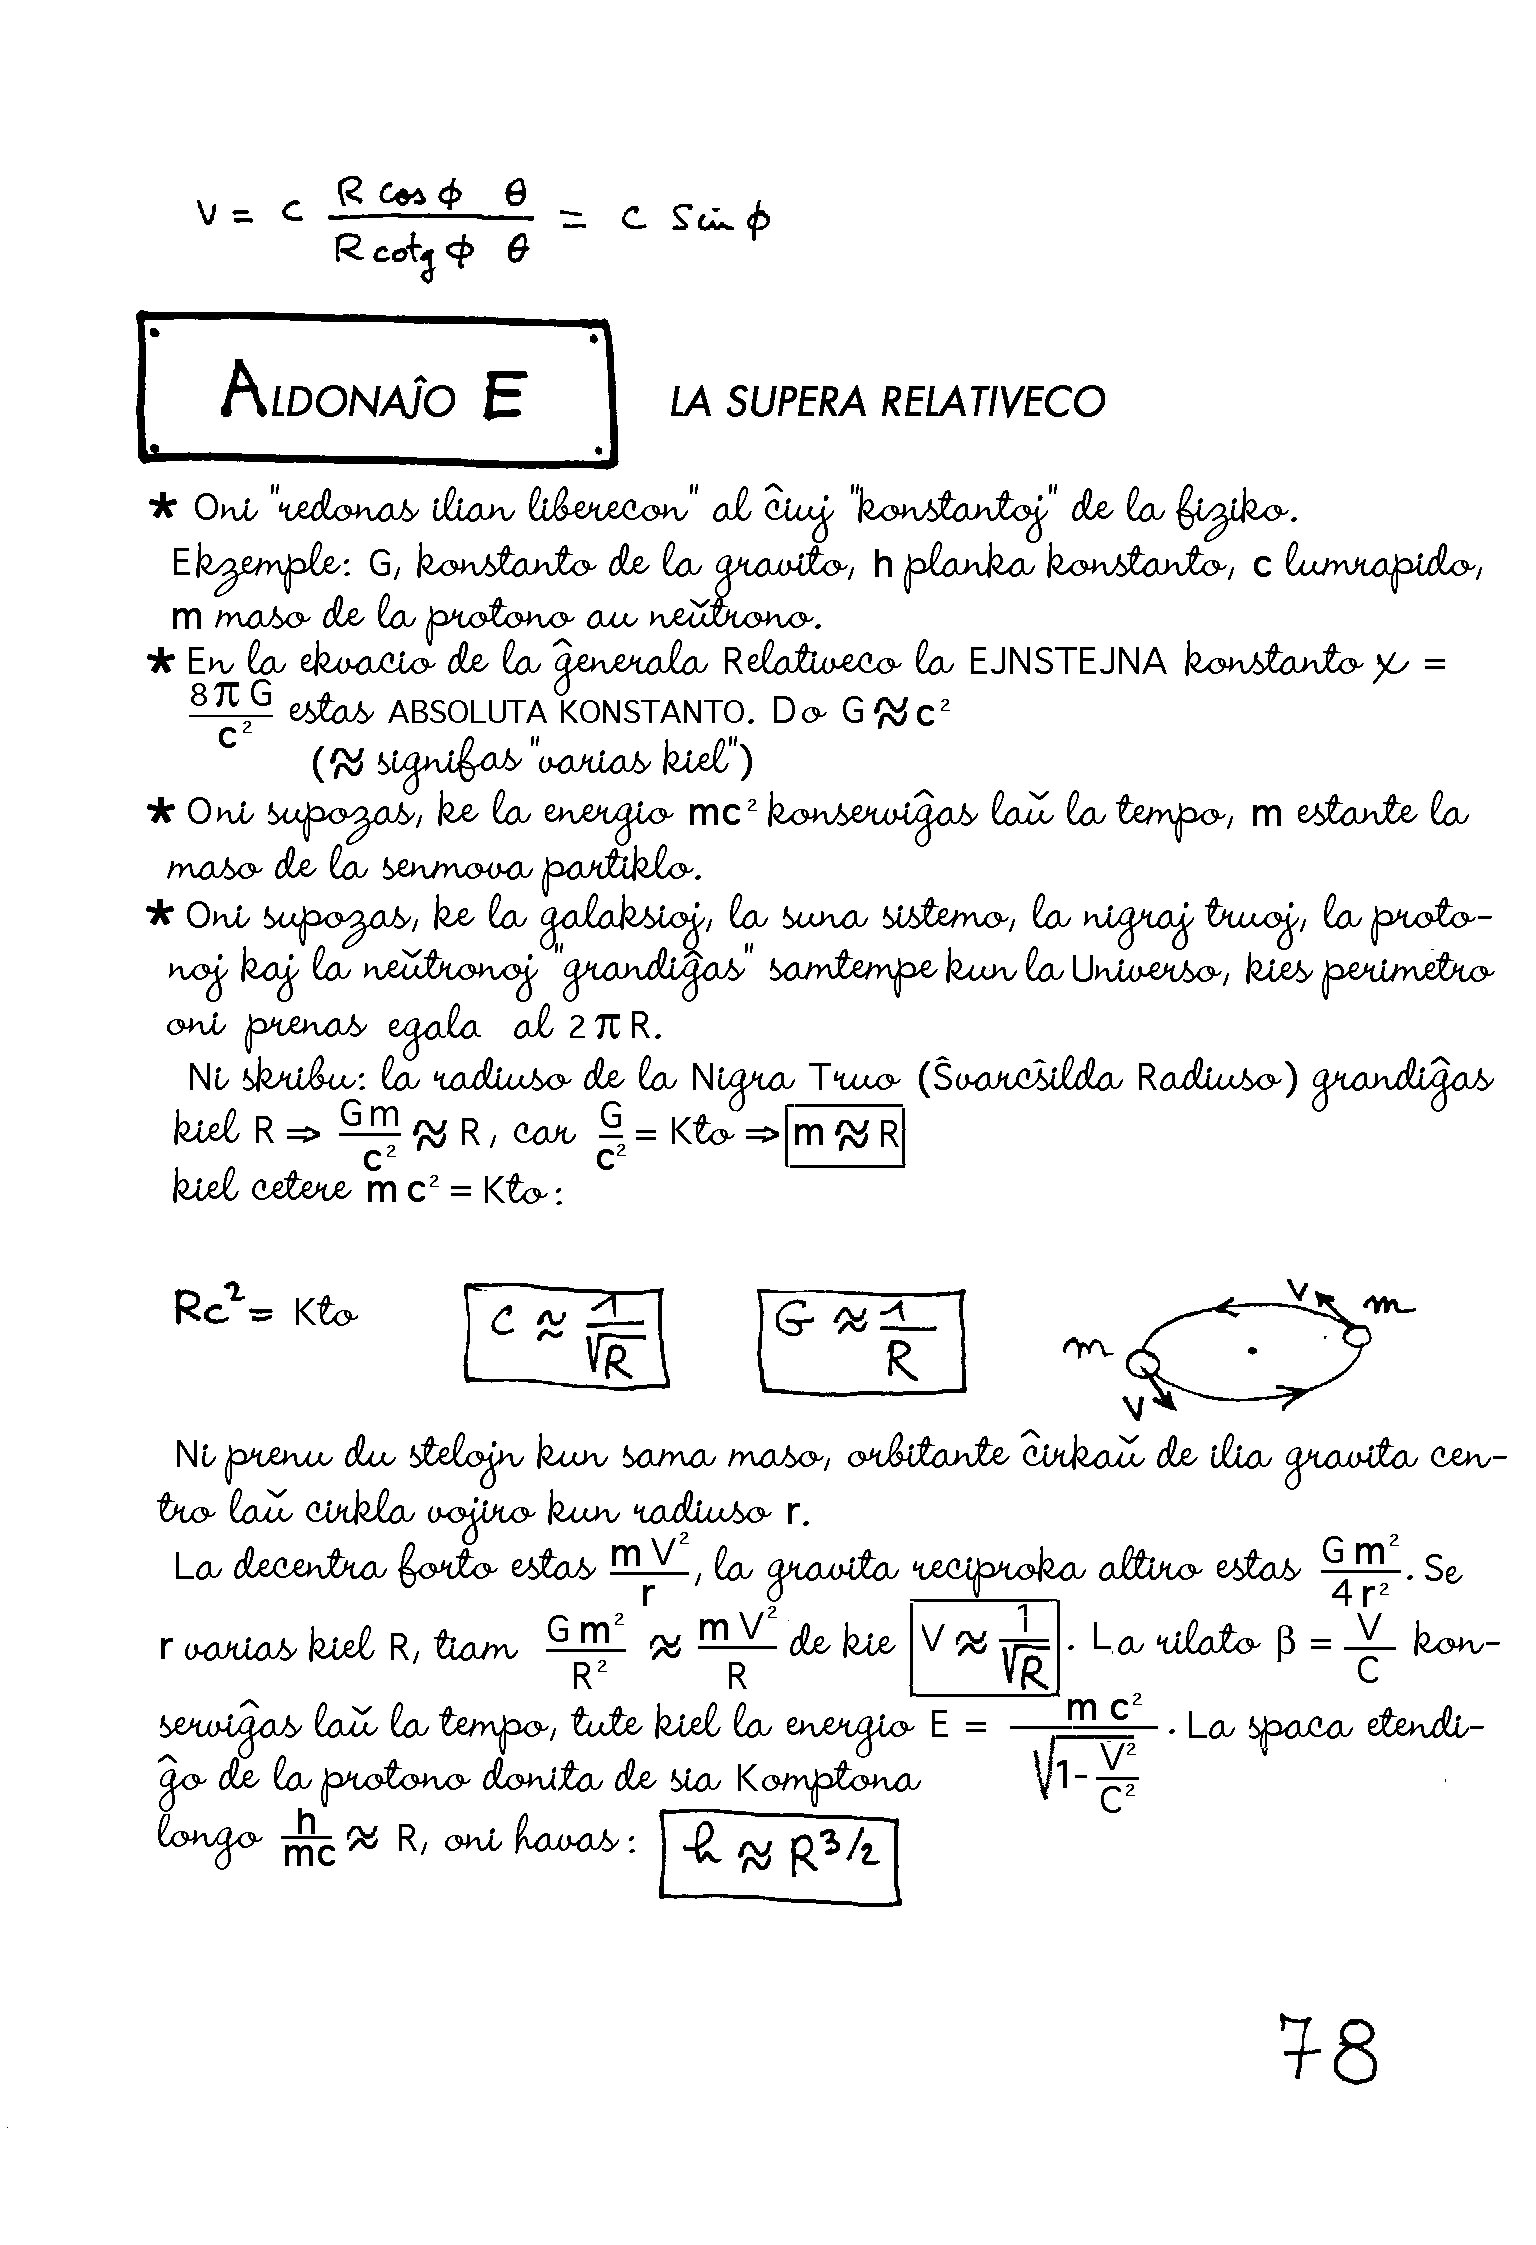 V = c (R cos ϕ θ)/(R cotg ϕ θ) = c Sin ϕ
ALDONAĴO E LA SUPERA RELATIVECO
* Oni "redonas ilian liberecon" al ĉiuj "konstantoj" de la fiziko.
Ekzemple: G, konstanto de la gravito, h planka konstanto, c lumrapido,
m maso de la protono au neŭtrono.
* En la ekvacio de la ĝenerala Relativeco la EJNSTEJNA konstanto χ =
8πG/c² estas ABSOLUTA KONSTANTO. Do G ≈ c²
(≈ signifas "varias kiel")
* Oni supozas, ke la energio mc² konserviĝas laŭ la tempo, m estante la
maso de la senmova partiklo.
* Oni supozas, ke la galaksioj, la suna sistemo, la nigraj truoj, la proto-
noj kaj la neŭtronoj "grandiĝas" samtempe kun la Universo, kies perimetro
oni prenas egala al 2πR.
Ni skribu: la radiuso de la Nigra Truo (Ŝvarcŝilda Radiuso) grandiĝas
kiel R ⇒ Gm/c² ≈ R, car G/c² = Kto ⇒ m ≈ R
kiel cetere mc² = Kto:
Rc² = Kto c ≈ 1/√R G ≈ 1/R
V m
m
V
Ni prenu du stelojn kun sama maso, orbitante ĉirkaŭ de ilia gravita cen-
tro laŭ cirkla vojiro kun radiuso r.
La decentra forto estas mV²/r, la gravita reciproka altiro estas Gm²/4r². Se
r varias kiel R, tiam Gm²/R² ≈ mV²/R de kie V ≈ 1/√R. La rilato β = V/C kon-
serviĝas laŭ la tempo, tute kiel la energio E = mc²/√(1-V²/C²). La spaca etendi-
ĝo de la protono donita de sia Komptona
longo h/mc ≈ R, oni havas: h ≈ R^3/2
78